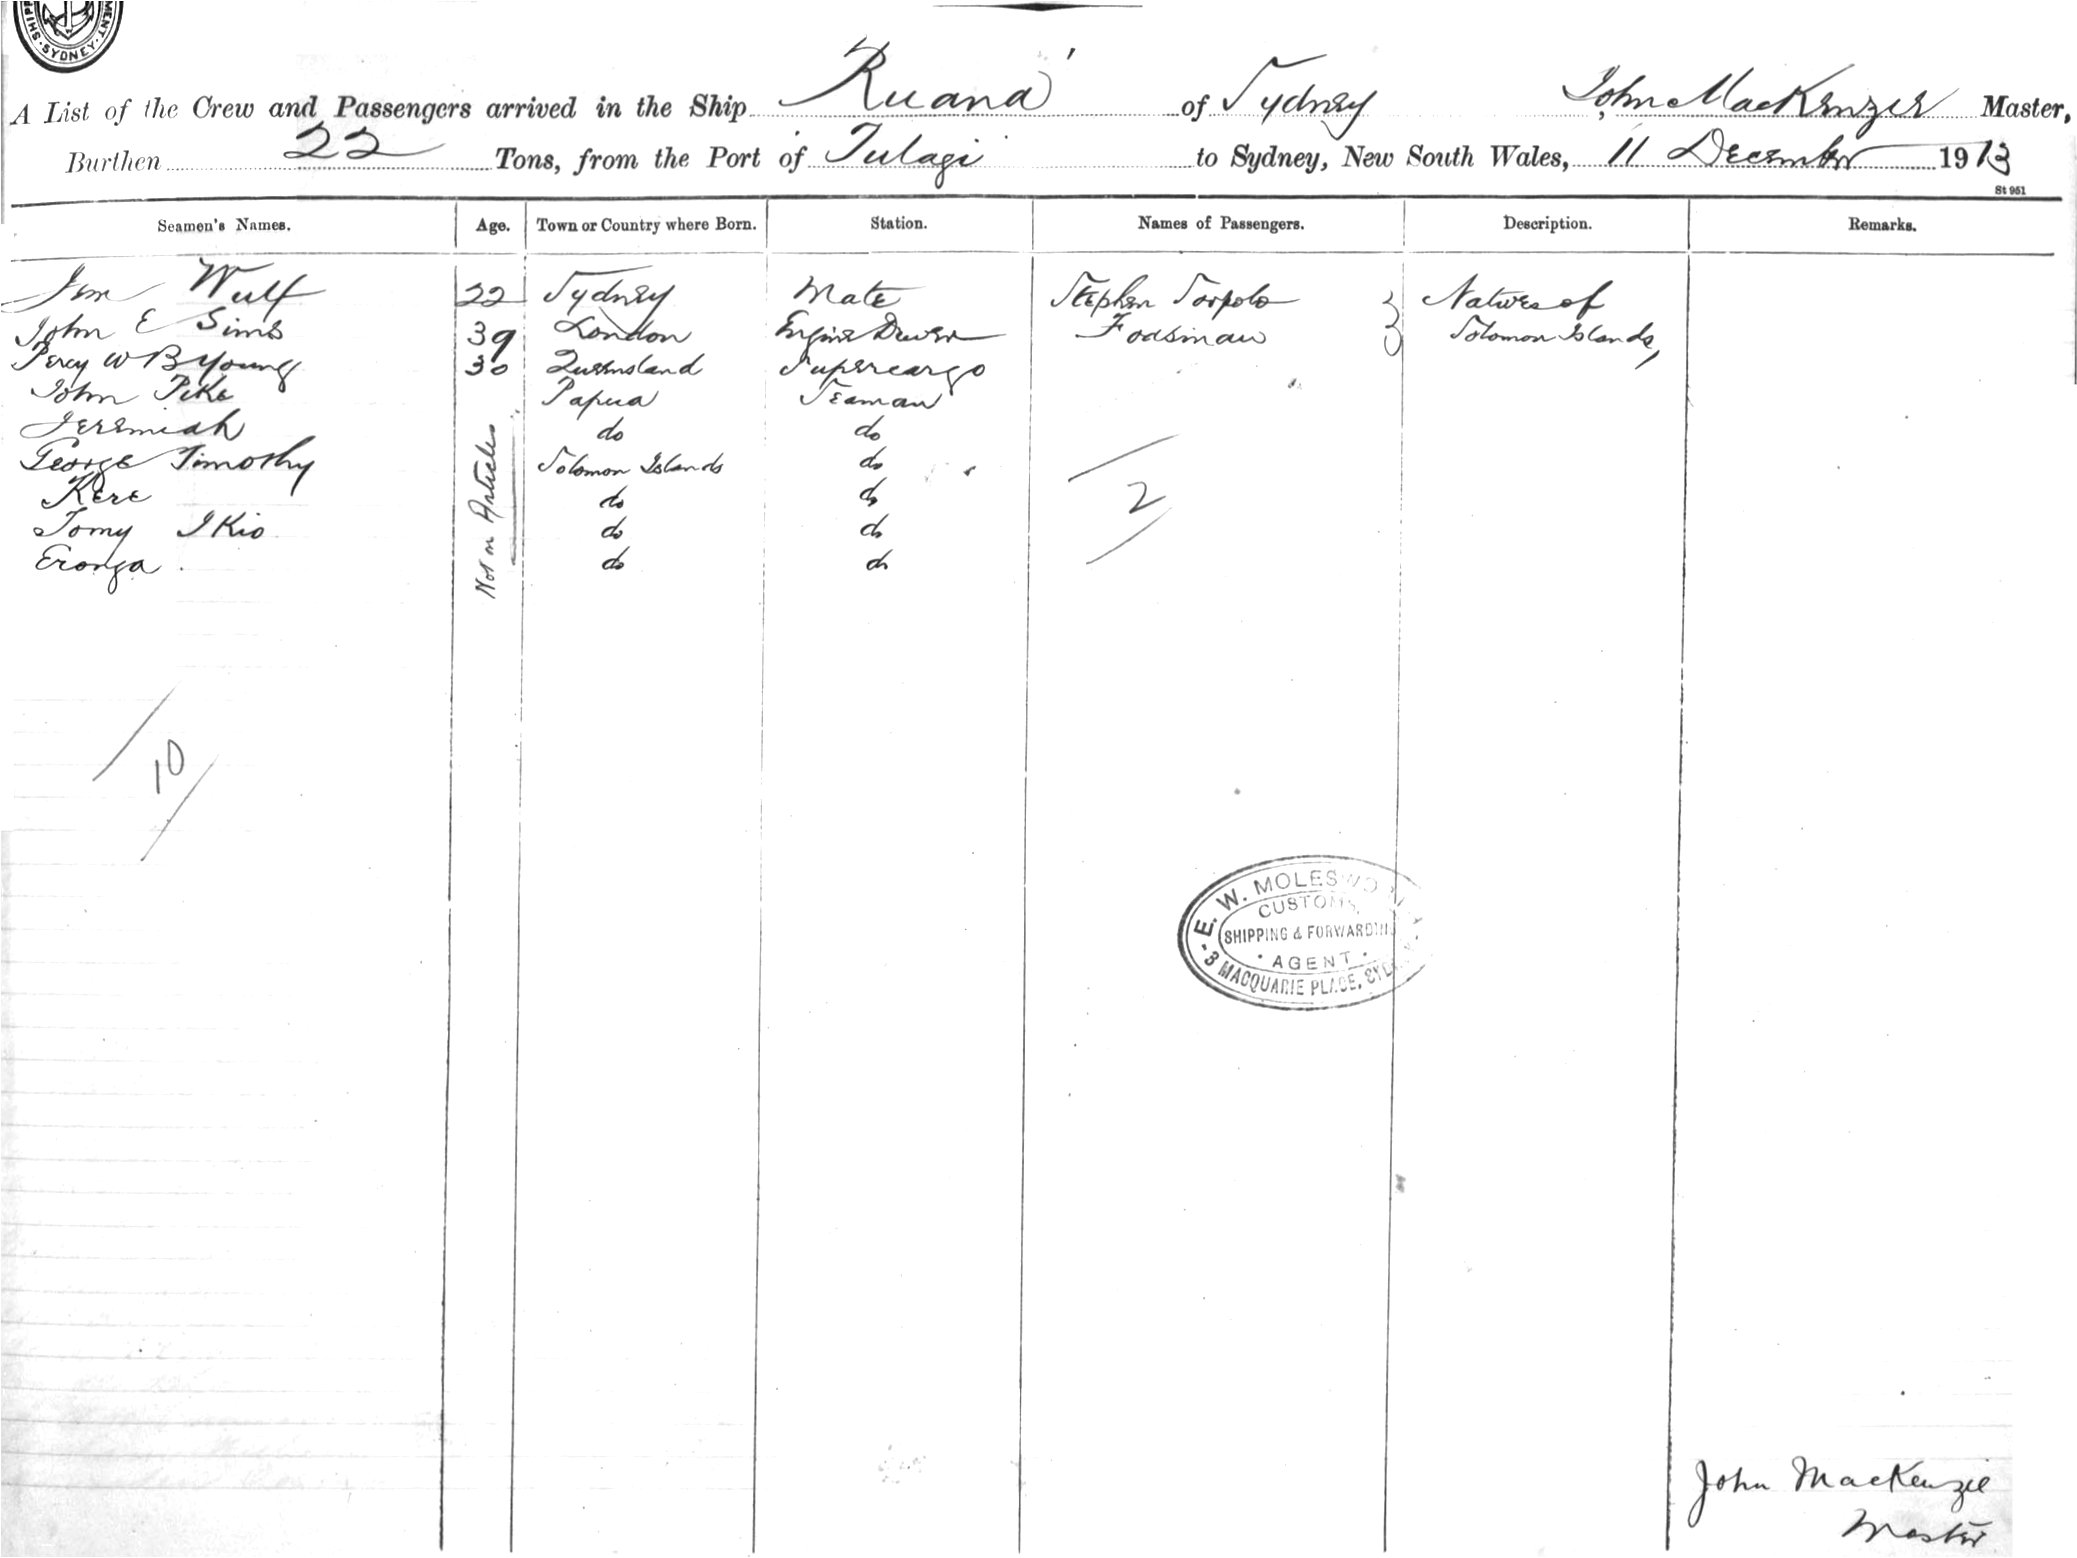 SHIPP MENT
· SYDNEY ·
A List of the Crew and Passengers arrived in the Ship Ruana of Sydney John MacKenzie Master,
Burthen 22 Tons, from the Port of Tulagi to Sydney, New South Wales, 11 December 1913
St 951
Seamen's Names. Age. Town or Country where Born. Station. Names of Passengers. Description. Remarks.
Wulf 22 Sydney Mate Stephen Natives of
John E Sims 39 London Engine Driver Solomon Islands,
Percy W B Young 30 Queensland Supercargo
John Pike Papua Seaman
Jeremiah do do
George Timothy Solomon Islands do
Kere do do
Tomy IKio do do
Eronga do do
Not on Articles
2
10
E. W. MOLESWO
CUSTOMS,
SHIPPING & FORWARDIN
· AGENT ·
3 MACQUARIE PLACE, SYD
John MacKenzie
Master